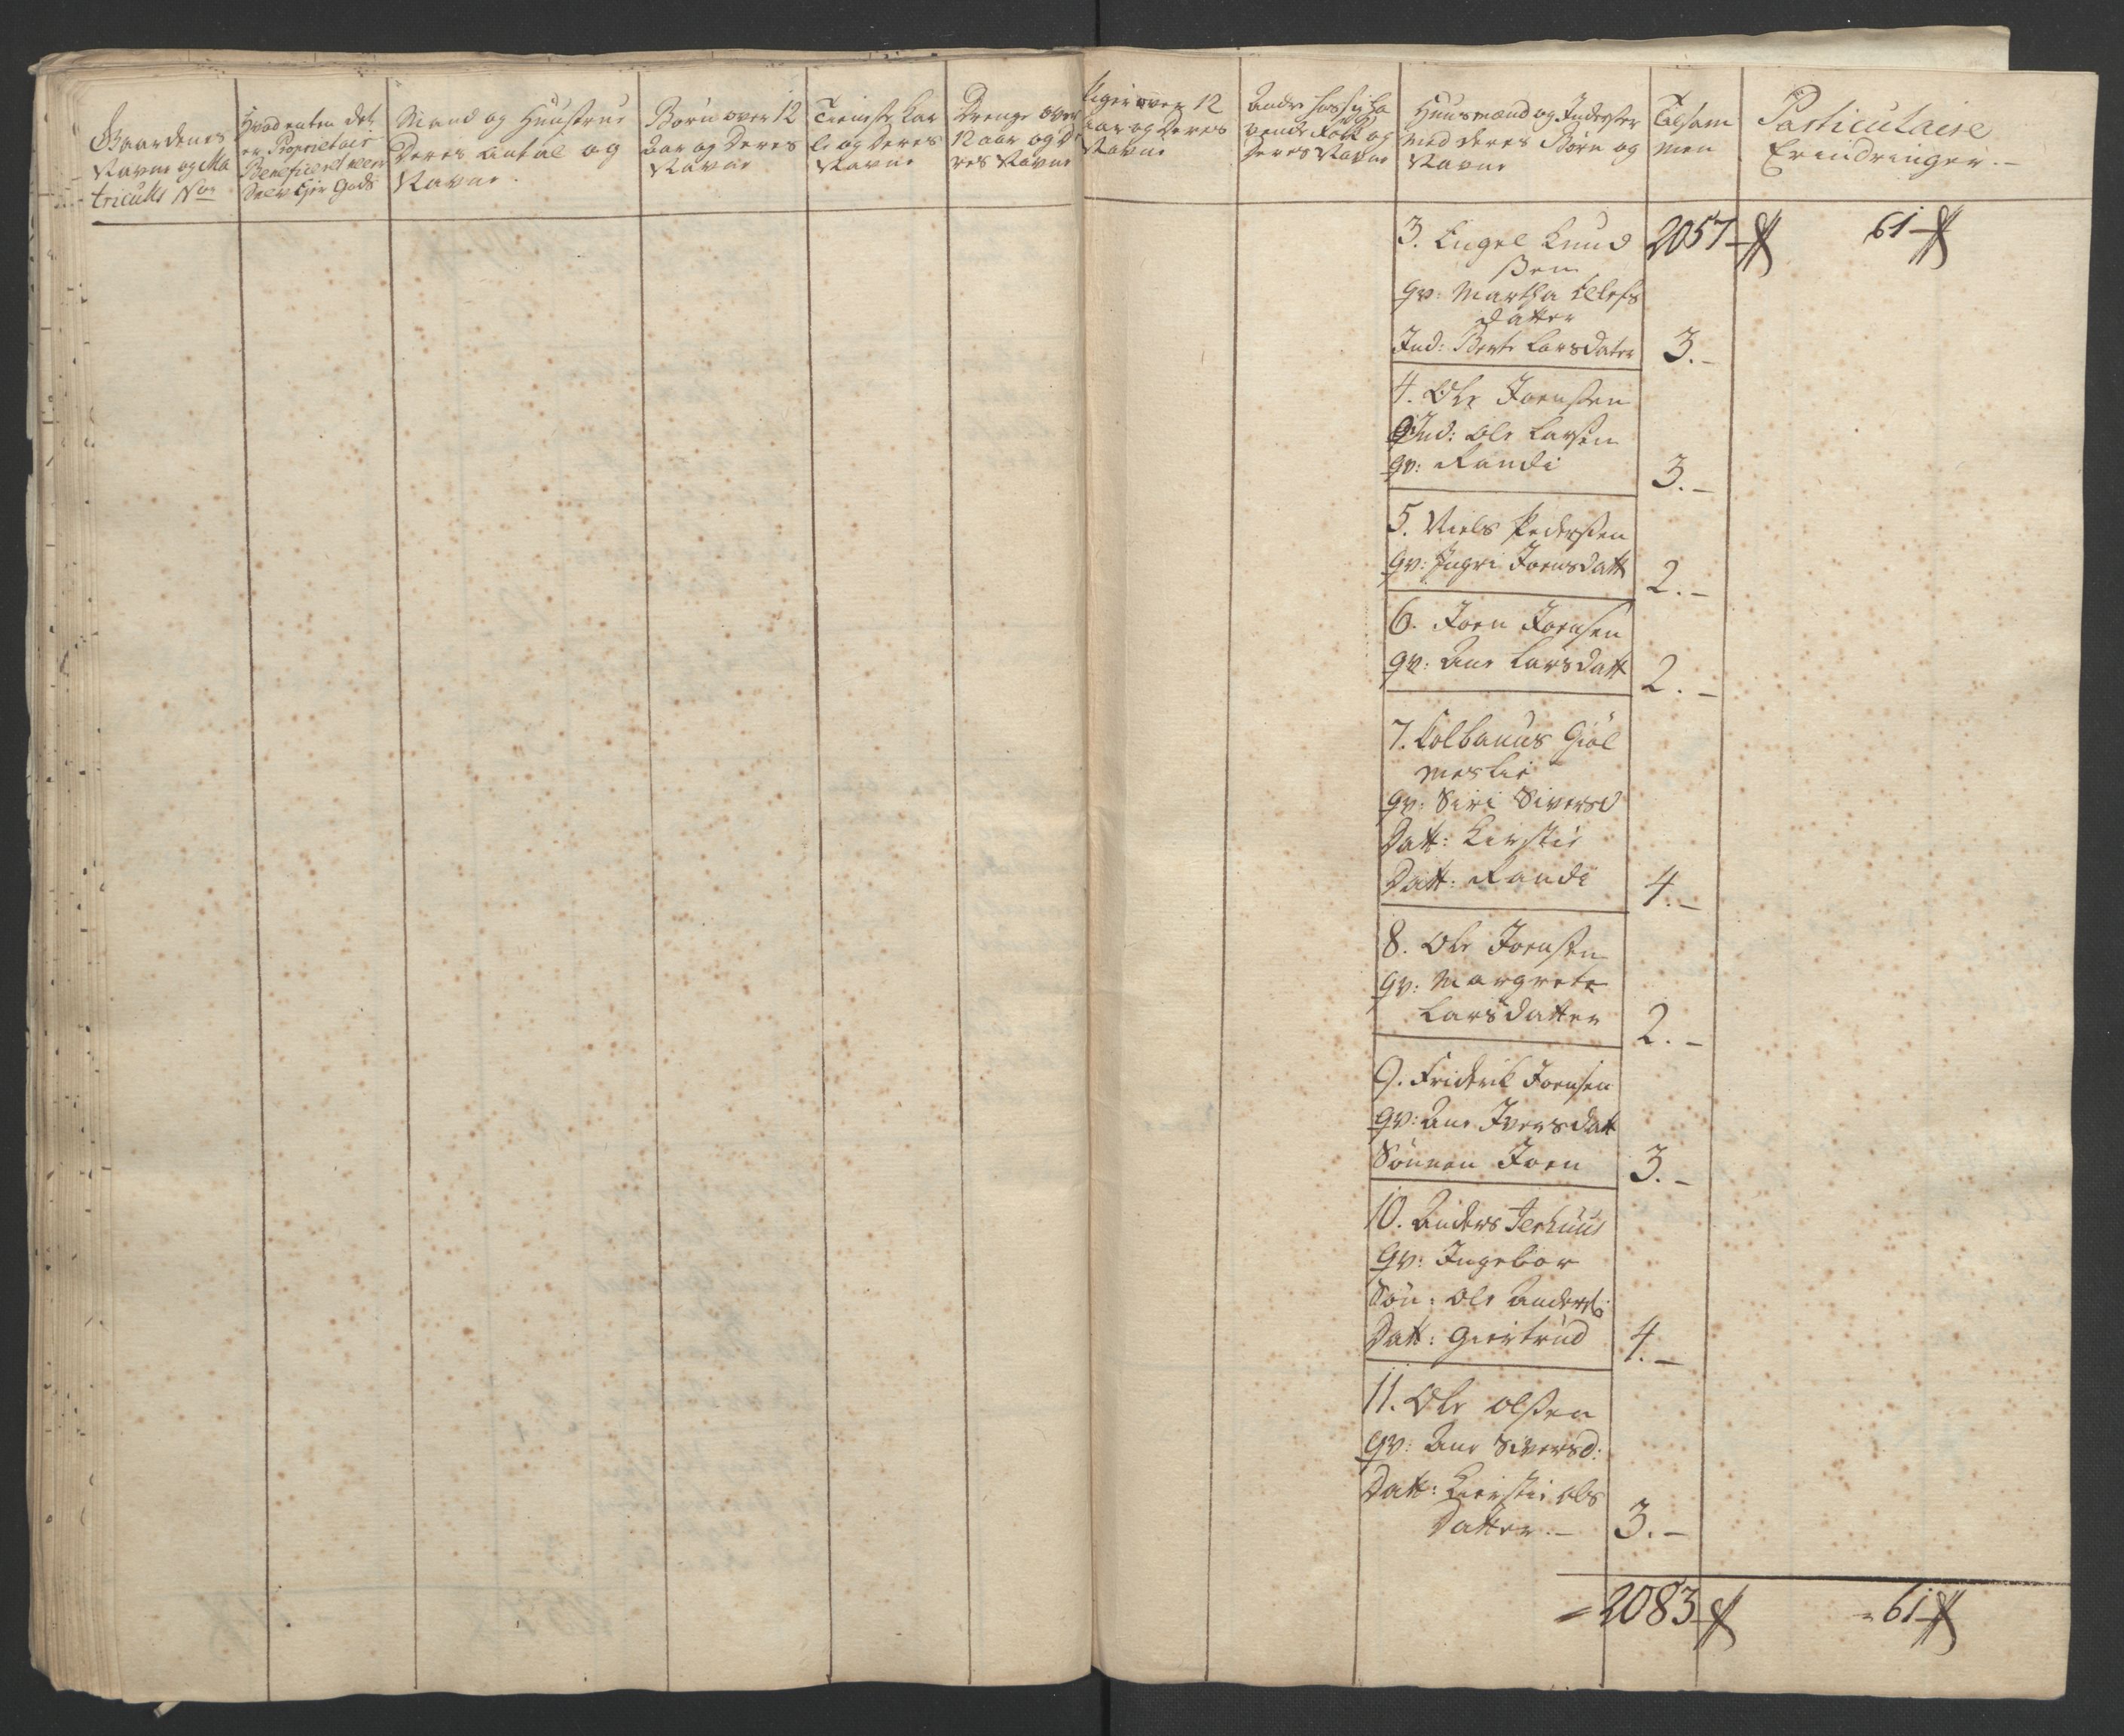 Gaardenes
Navne og Ma
triculs No
Hvad enten det
er Proprietair
Beneficeret eller
Selv Ejer Gods
Mand og Hustrue
Deres Antal og
Navne.
Børn over 12
Aar og Deres
Navne
Tieniste Kar
le og Deres
Navne
Drenge over
12 aar og De
res Navne
Piger over 12
aar og Deres
Navne
Andre hos sig ha
vende Folk og
Deres Navne
Huusmænd og Inderster
med deres Børn og
Navne
Tilsam
men
Particulaire
Erindringer.
3. Engel Knud
ßen
gv: Martha Olefs
datter
Ind: Berte Larsdater 3.–
2057 61
4. Ole Joenßen
Ind: Ole Larsen
gv: Randi 3.–
5. Niels Pederßen
gv: Ingri Joensdatt 2.–
6. Joen Joensen
gv: Ane Larsdatt 2.–
7. Colbanus Giøl
meslie
gv: Siri Siversd
Datt: Kirstie
Datt: Randi 4.–
8. Ole Joensen
gv: Margrete
Larsdatter 2.–
9. Friderik Joensen
gv: Ane Iversdatt
Sønnen Joen 3.–
10. Anders
gv: Ingebor
Søn: Ole Anders:
Datt: Giertrud 4.–
11. Ole Olßen
gv: Ane Siversd:
Datt: Kierstie Ols
Datter.– 3.–
= 2083 = 61